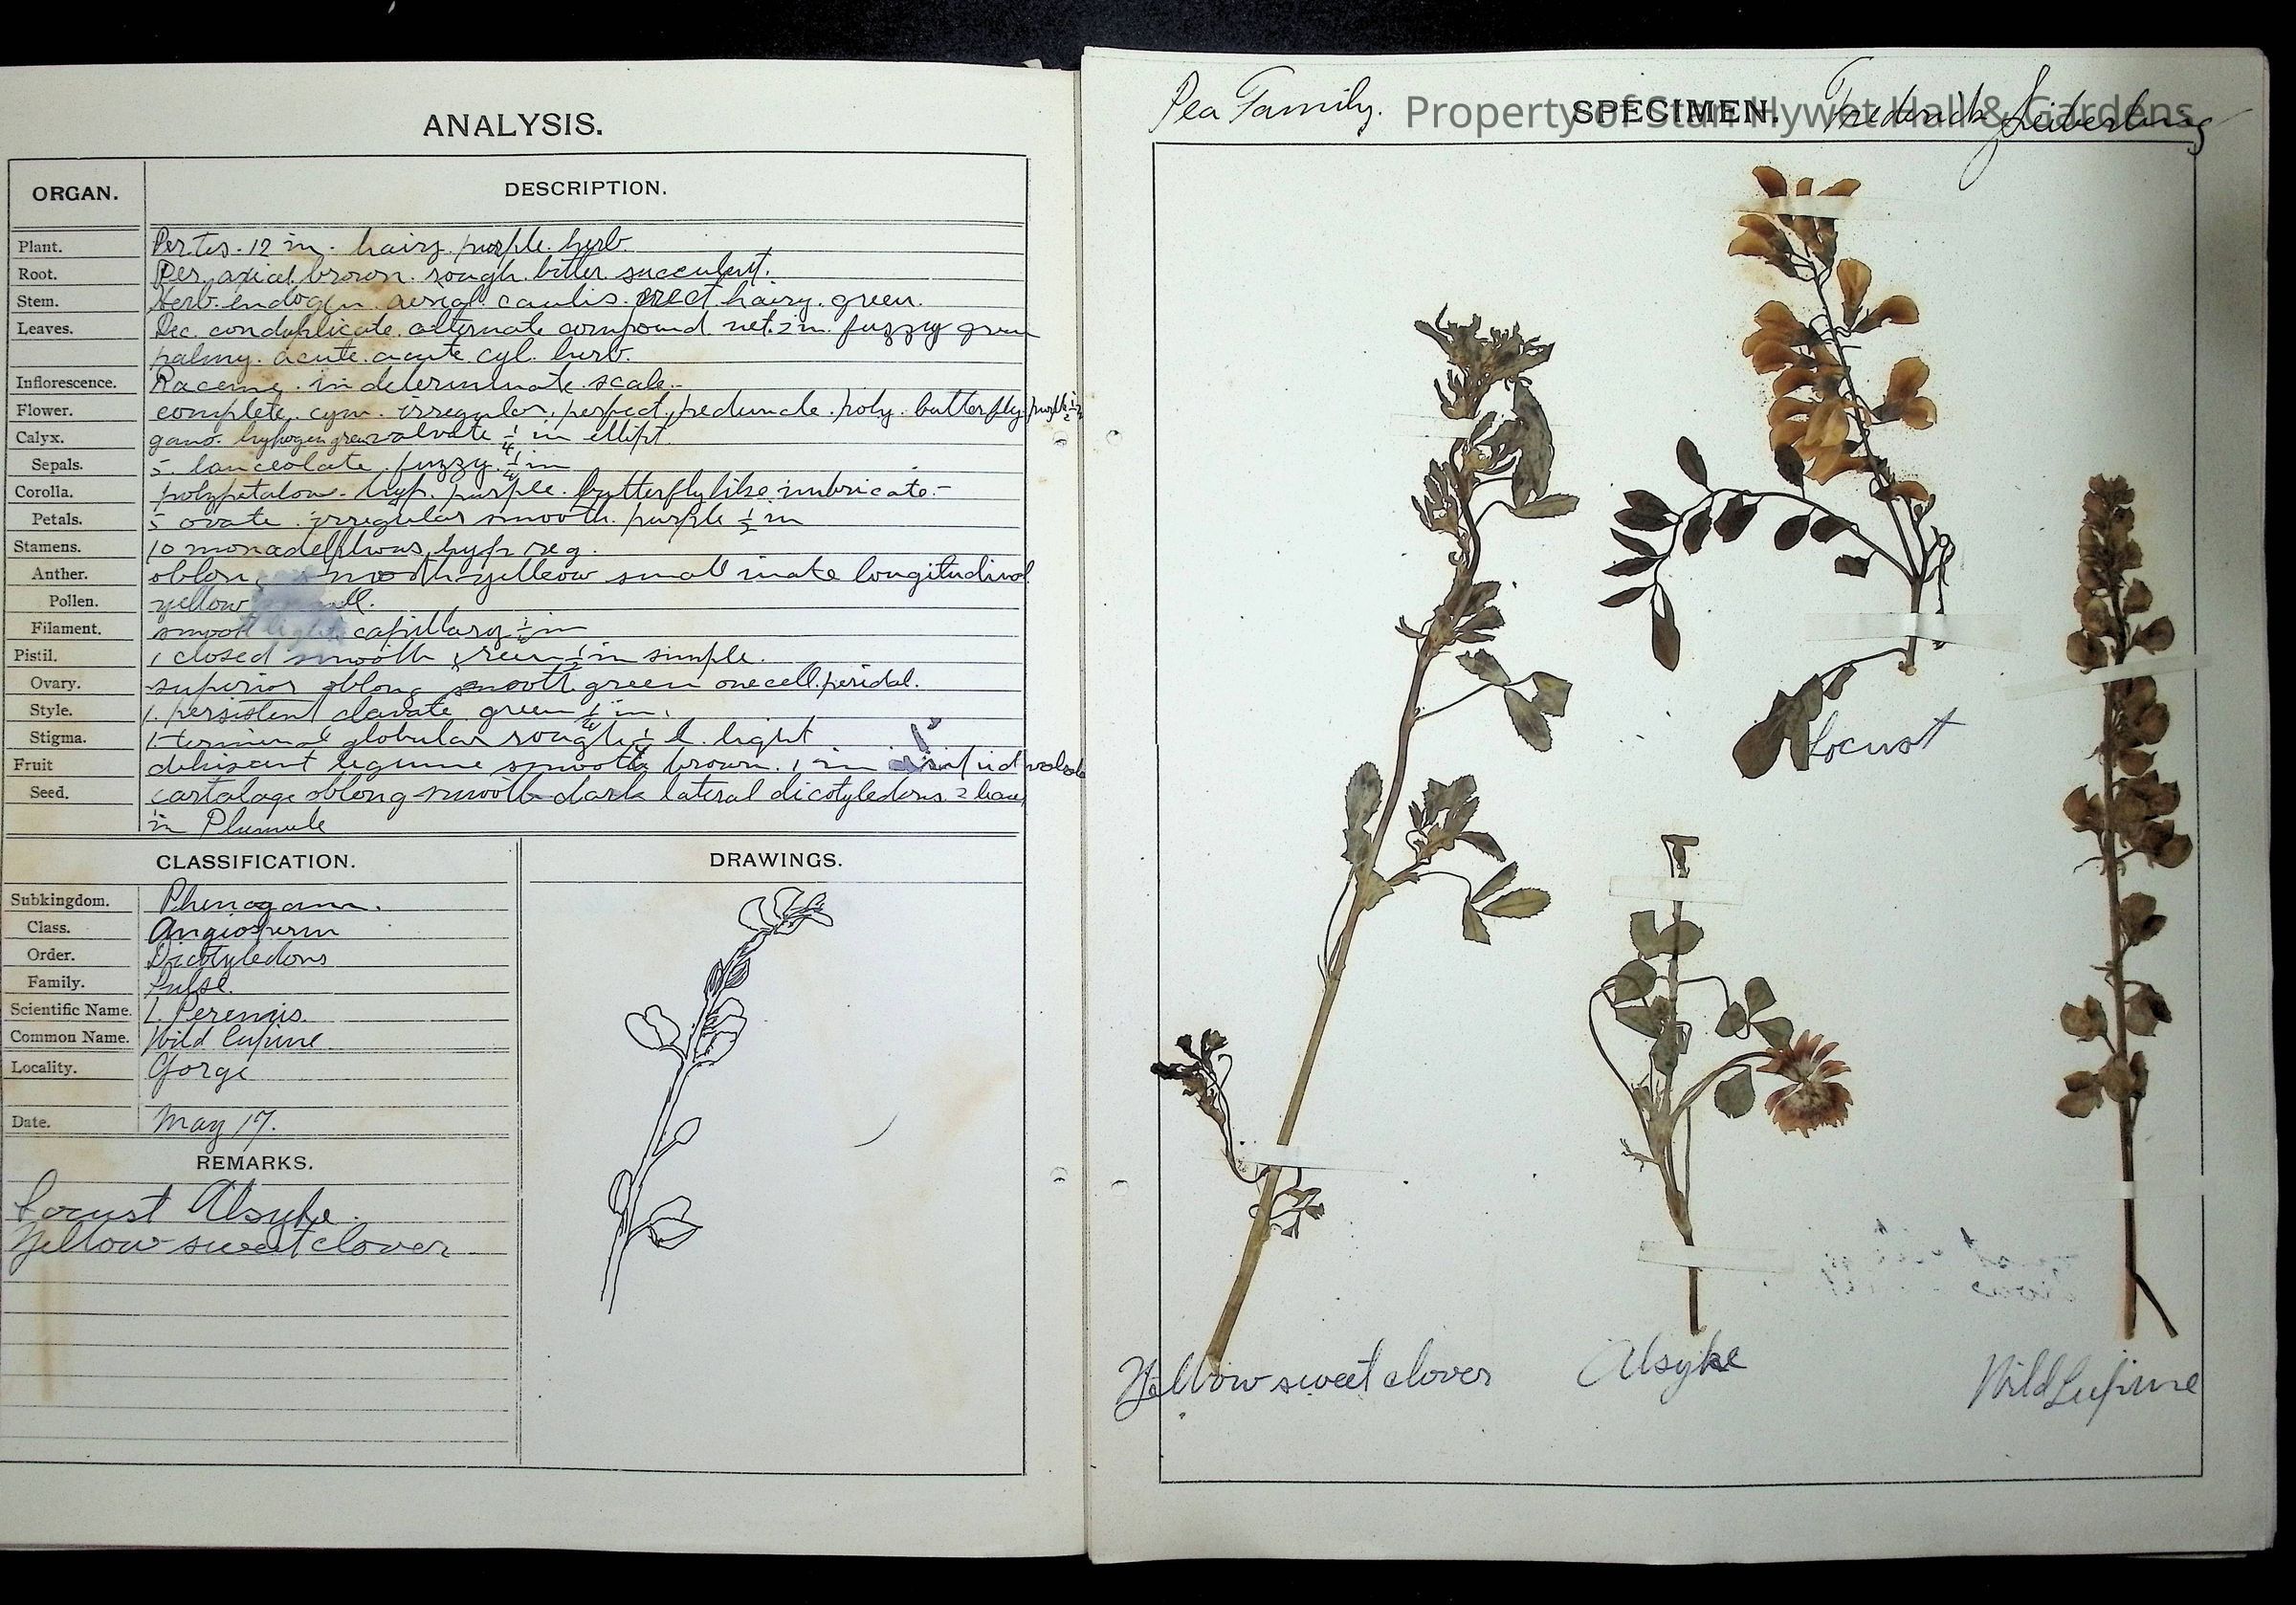 ANALYSIS.
ORGAN. DESCRIPTION.
Plant. 12 in. hairy purple herb.
Root. Per. axial. brown. rough. bitter succulent.
Stem. herb. endogen. aerial caulis. erect. hairy. green.
Leaves. Dec. conduplicate. alternate compound net. 2 in. fuzzy green
palmy. acute. acute cyl. herb.
Inflorescence. Raceme. indeterminate. scale.
Flower. complete. cym. irregular. perfect, peduncle. poly. butterfly. purple ½ in
Calyx. gamo. hypogen green valvate ¼ in ellipt.
Sepals. 5. lanceolate. fuzzy. ¼ in
Corolla. polypetalous. hyp. purple. butterfly like imbricate.
Petals. 5 ovate. irregular smooth. purple ½ in
Stamens. 10 monadelphous, hyp reg.
Anther. oblong smooth yellow small inate longitudinal
Pollen. yellow small.
Filament. smooth light capillary in
Pistil. 1 closed smooth green ½ in simple.
Ovary. superior oblong smooth green one cell.
Style. 1. persistent clavate green ¼ in.
Stigma. 1 terminal globular rough light
Fruit dehiscent legume smooth brown. 1 in
Seed. cartalage oblong smooth dark lateral dicotyledons 2 leaves
in Plumule
CLASSIFICATION.
Subkingdom. Phenogam.
Class. Angiosperm
Order. Dicotyledons
Family. Pulse.
Scientific Name. L. Perennis.
Common Name. Wild Lupine
Locality. Gorge
Date. May 17.
REMARKS.
Locust Alsyke.
Yellow sweet clover
DRAWINGS.
Pea Family. SPECIMEN. Frederick Seiberling
Property of Stan Hywet Hall & Gardens
Locust
Yellow sweet clover
Alsyke
Wild Lupine